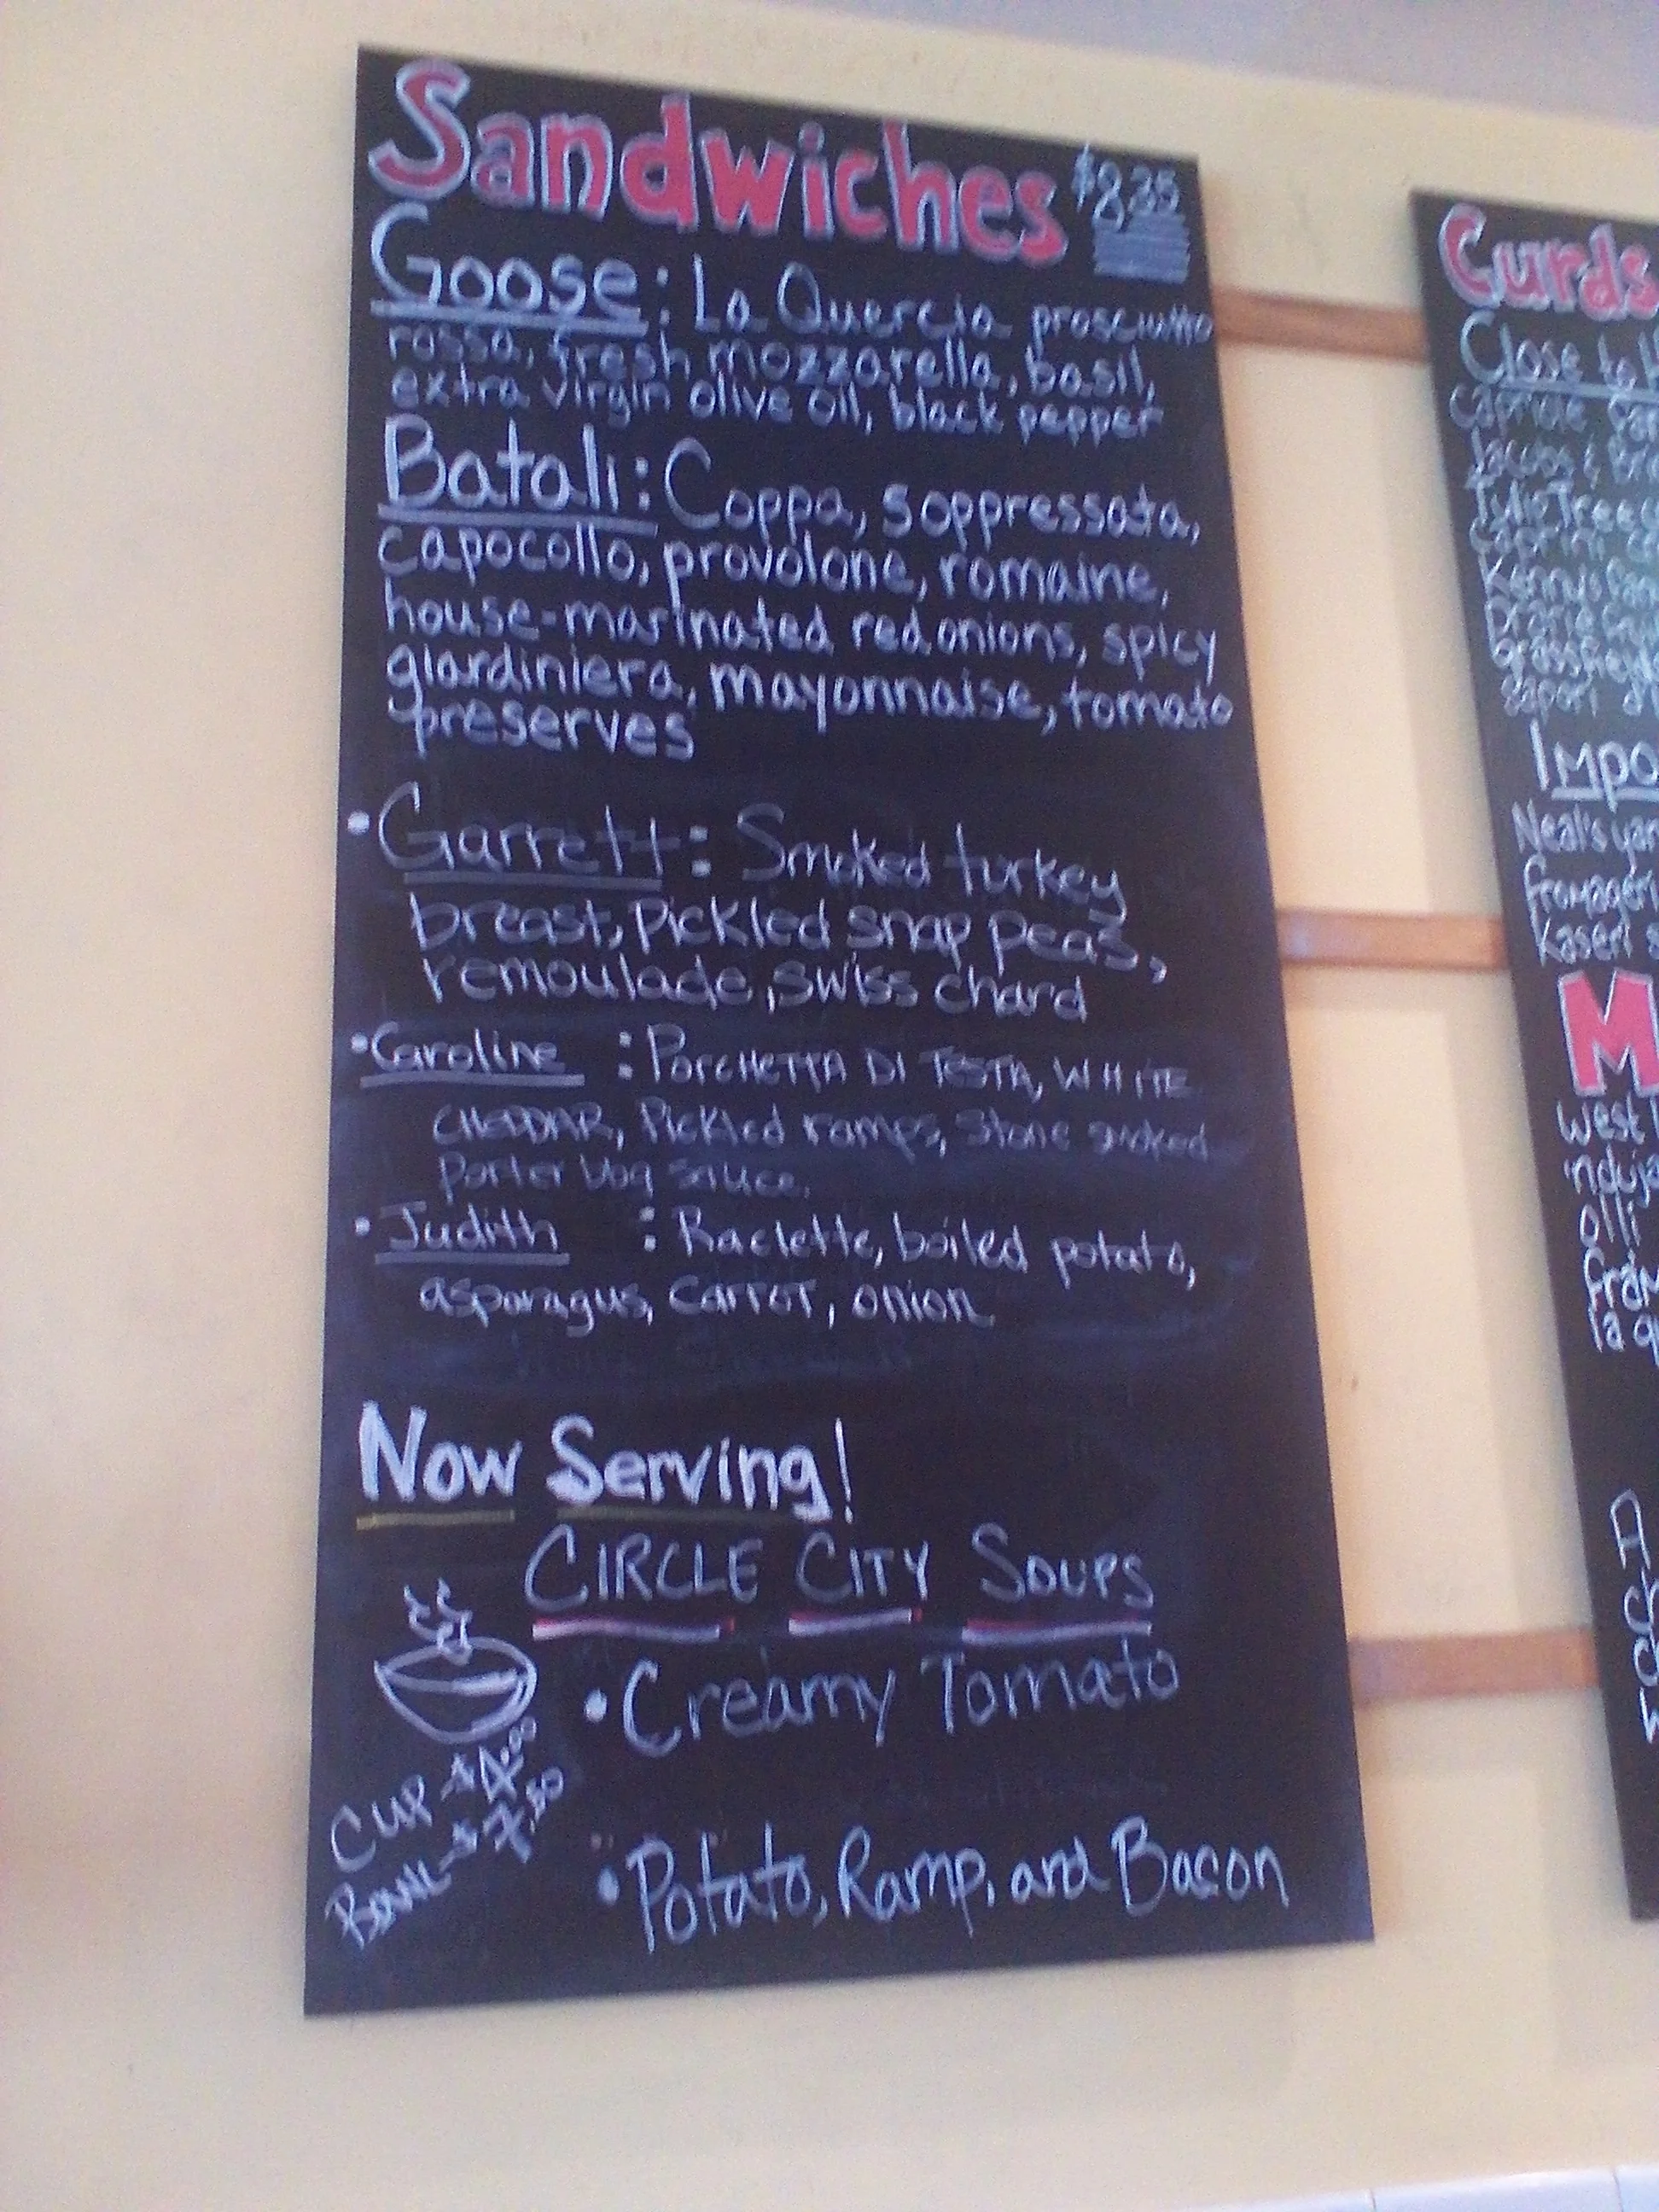 Sandwiches $8.25
Goose: La Quercia prosciutto
rossa, fresh mozzarella, basil,
extra virgin olive oil, black pepper
Batali: Coppa, soppressata,
capocollo, provolone, romaine,
house-marinated red onions, spicy
giardiniera, mayonnaise, tomato
preserves
• Garrett: Smoked turkey
breast, Pickled snap peas,
remoulade, swiss chard
• Caroline : PORCHETTA DI TESTA, WHITE
CHEDDAR, Pickled ramps, Stone smoked
porter bbq sauce.
• Judith : Raclette, boiled potato,
asparagus, carrot, onion
Now Serving!
CIRCLE CITY SOUPS
• Creamy Tomato
CUP - $4.00
BOWL - $7.50
• Potato, Ramp, and Bacon
Curds
Close to
capriole
Tulip Tree
Kenny's
Neal's
Kaseri
M
West
nduja
olli